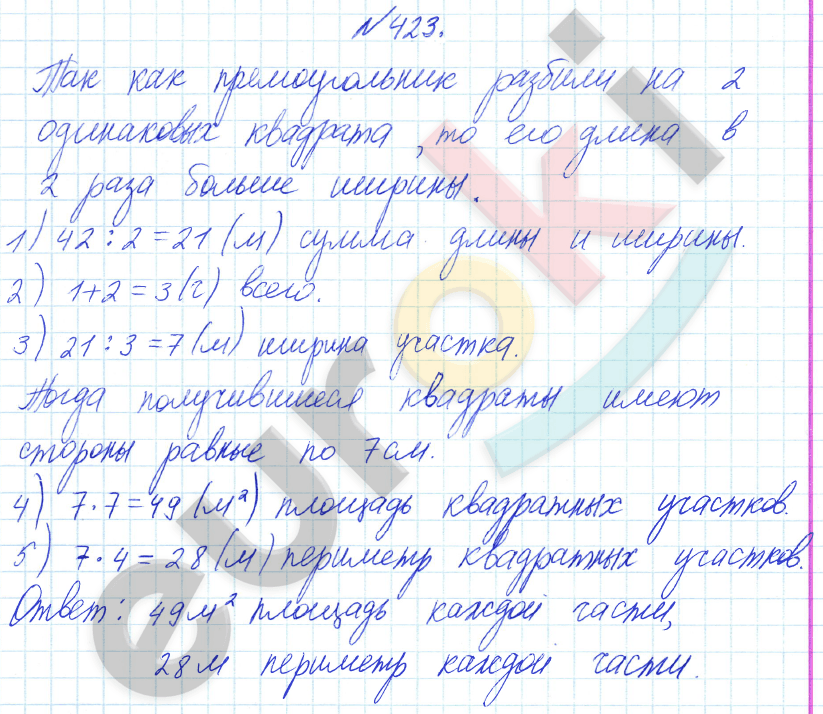 №423.
Так как прямоугольник разбили на 2
одинаковых квадрата, то его длина в
2 раза больше ширины.
1) 42:2=21(м) сумма длины и ширины.
2) 1+2=3(ч) всего.
3) 21:3=7(м) ширина участка.
Тогда получившиеся квадраты имеют
стороны равные по 7см.
4) 7·7=49(м²) площадь квадратных участков.
5) 7·4=28(м) периметр квадратных участков.
Ответ: 49м² площадь каждой части,
28м периметр каждой части.
euroki